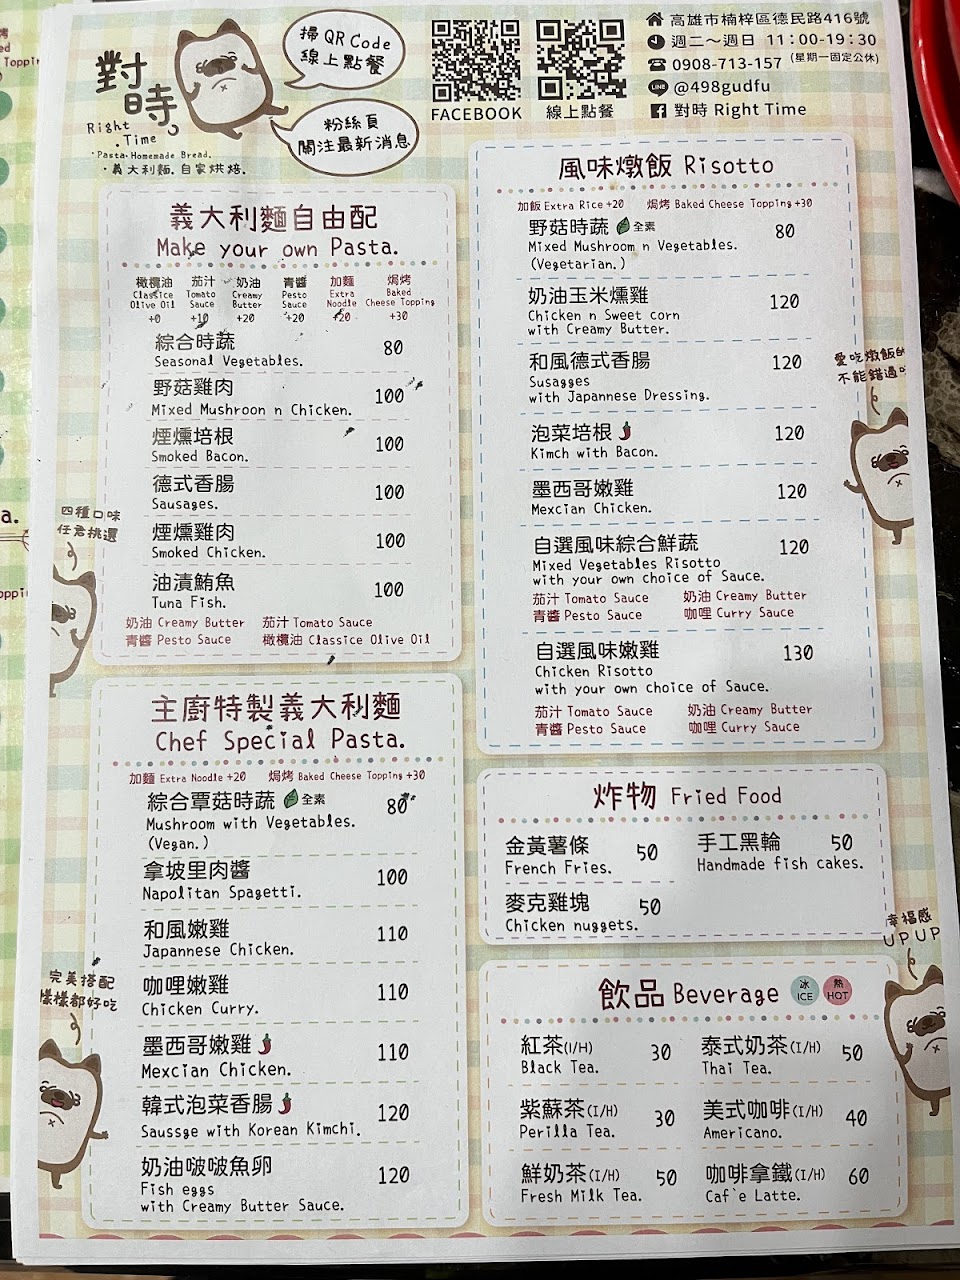 對時。
Right
.Time
·Pasta·Homemade Bread.
·義大利麵.自家烘焙.
掃QR Code
線上點餐
粉絲頁
關注最新消息
FACEBOOK
線上點餐
高雄市楠梓區德民路416號
週二～週日 11：00-19：30
(星期一固定公休)
0908-713-157
LINE
@498gudfu
對時 Right Time
義大利麵自由配
Make your own Pasta.
橄欖油 茄汁 奶油 青醬 加麵 焗烤
Classice Tomato Creamy Pesto Extra Baked
Olive Oil Sauce Butter Sauce Noodle Cheese Topping
+0 +10 +20 +20 +20 +30
綜合時蔬 80
Seasonal Vegetables.
野菇雞肉 100
Mixed Mushroon n Chicken.
煙燻培根 100
Smoked Bacon.
德式香腸 100
Sausages.
煙燻雞肉 100
Smoked Chicken.
油漬鮪魚 100
Tuna Fish.
奶油 Creamy Butter 茄汁 Tomato Sauce
青醬 Pesto Sauce 橄欖油 Classice Olive Oil
四種口味
任君挑選
主廚特製義大利麵
Chef Special Pasta.
加麵 Extra Noodle +20 焗烤 Baked Cheese Topping +30
綜合蕈菇時蔬 全素 80
Mushroom with Vegetables.
(Vegan.)
拿坡里肉醬 100
Napolitan Spagetti.
和風嫩雞 110
Japannese Chicken.
咖哩嫩雞 110
Chicken Curry.
墨西哥嫩雞 110
Mexcian Chicken.
韓式泡菜香腸 120
Saussge with Korean Kimchi.
奶油啵啵魚卵 120
Fish eggs
with Creamy Butter Sauce.
完美搭配
樣樣都好吃
風味燉飯 Risotto
加飯 Extra Rice +20 焗烤 Baked Cheese Topping +30
野菇時蔬 全素 80
Mixed Mushroom n Vegetables.
(Vegetarian.)
奶油玉米燻雞 120
Chicken n Sweet corn
with Creamy Butter.
和風德式香腸 120
Susagges
with Japannese Dressing.
泡菜培根 120
Kimch with Bacon.
墨西哥嫩雞 120
Mexcian Chicken.
自選風味綜合鮮蔬 120
Mixed Vegetables Risotto
with your own choice of Sauce.
茄汁 Tomato Sauce 奶油 Creamy Butter
青醬 Pesto Sauce 咖哩 Curry Sauce
自選風味嫩雞 130
Chicken Risotto
with your own choice of Sauce.
茄汁 Tomato Sauce 奶油 Creamy Butter
青醬 Pesto Sauce 咖哩 Curry Sauce
愛吃燉飯的
不能錯過
炸物 Fried Food
金黃薯條 50 手工黑輪 50
French Fries. Handmade fish cakes.
麥克雞塊 50
Chicken nuggets.
幸福感
UPUP
飲品 Beverage 冰 ICE 熱 HOT
紅茶(I/H) 30 泰式奶茶(I/H) 50
Black Tea. Thai Tea.
紫蘇茶(I/H) 30 美式咖啡(I/H) 40
Perilla Tea. Americano.
鮮奶茶(I/H) 50 咖啡拿鐵(I/H) 60
Fresh Milk Tea. Caf`e Latte.